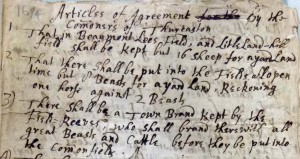 1694
Articles of Agreement for the by the
Comoners of Thurcaston
1 That in Beaumont Lees Field, and Little Land-hill
field shall be kept but 16 Sheep for a yard land
2 That there shall be put into the Fields all open
time but 4 Beasts for a yard land Reckoning
one horse against 2 Beasts
3) There shall be a Town Brand kept by the
Field-Reeves, who shall brand therewith all
great Beasts and Cattle before they be put into
the Comon fields